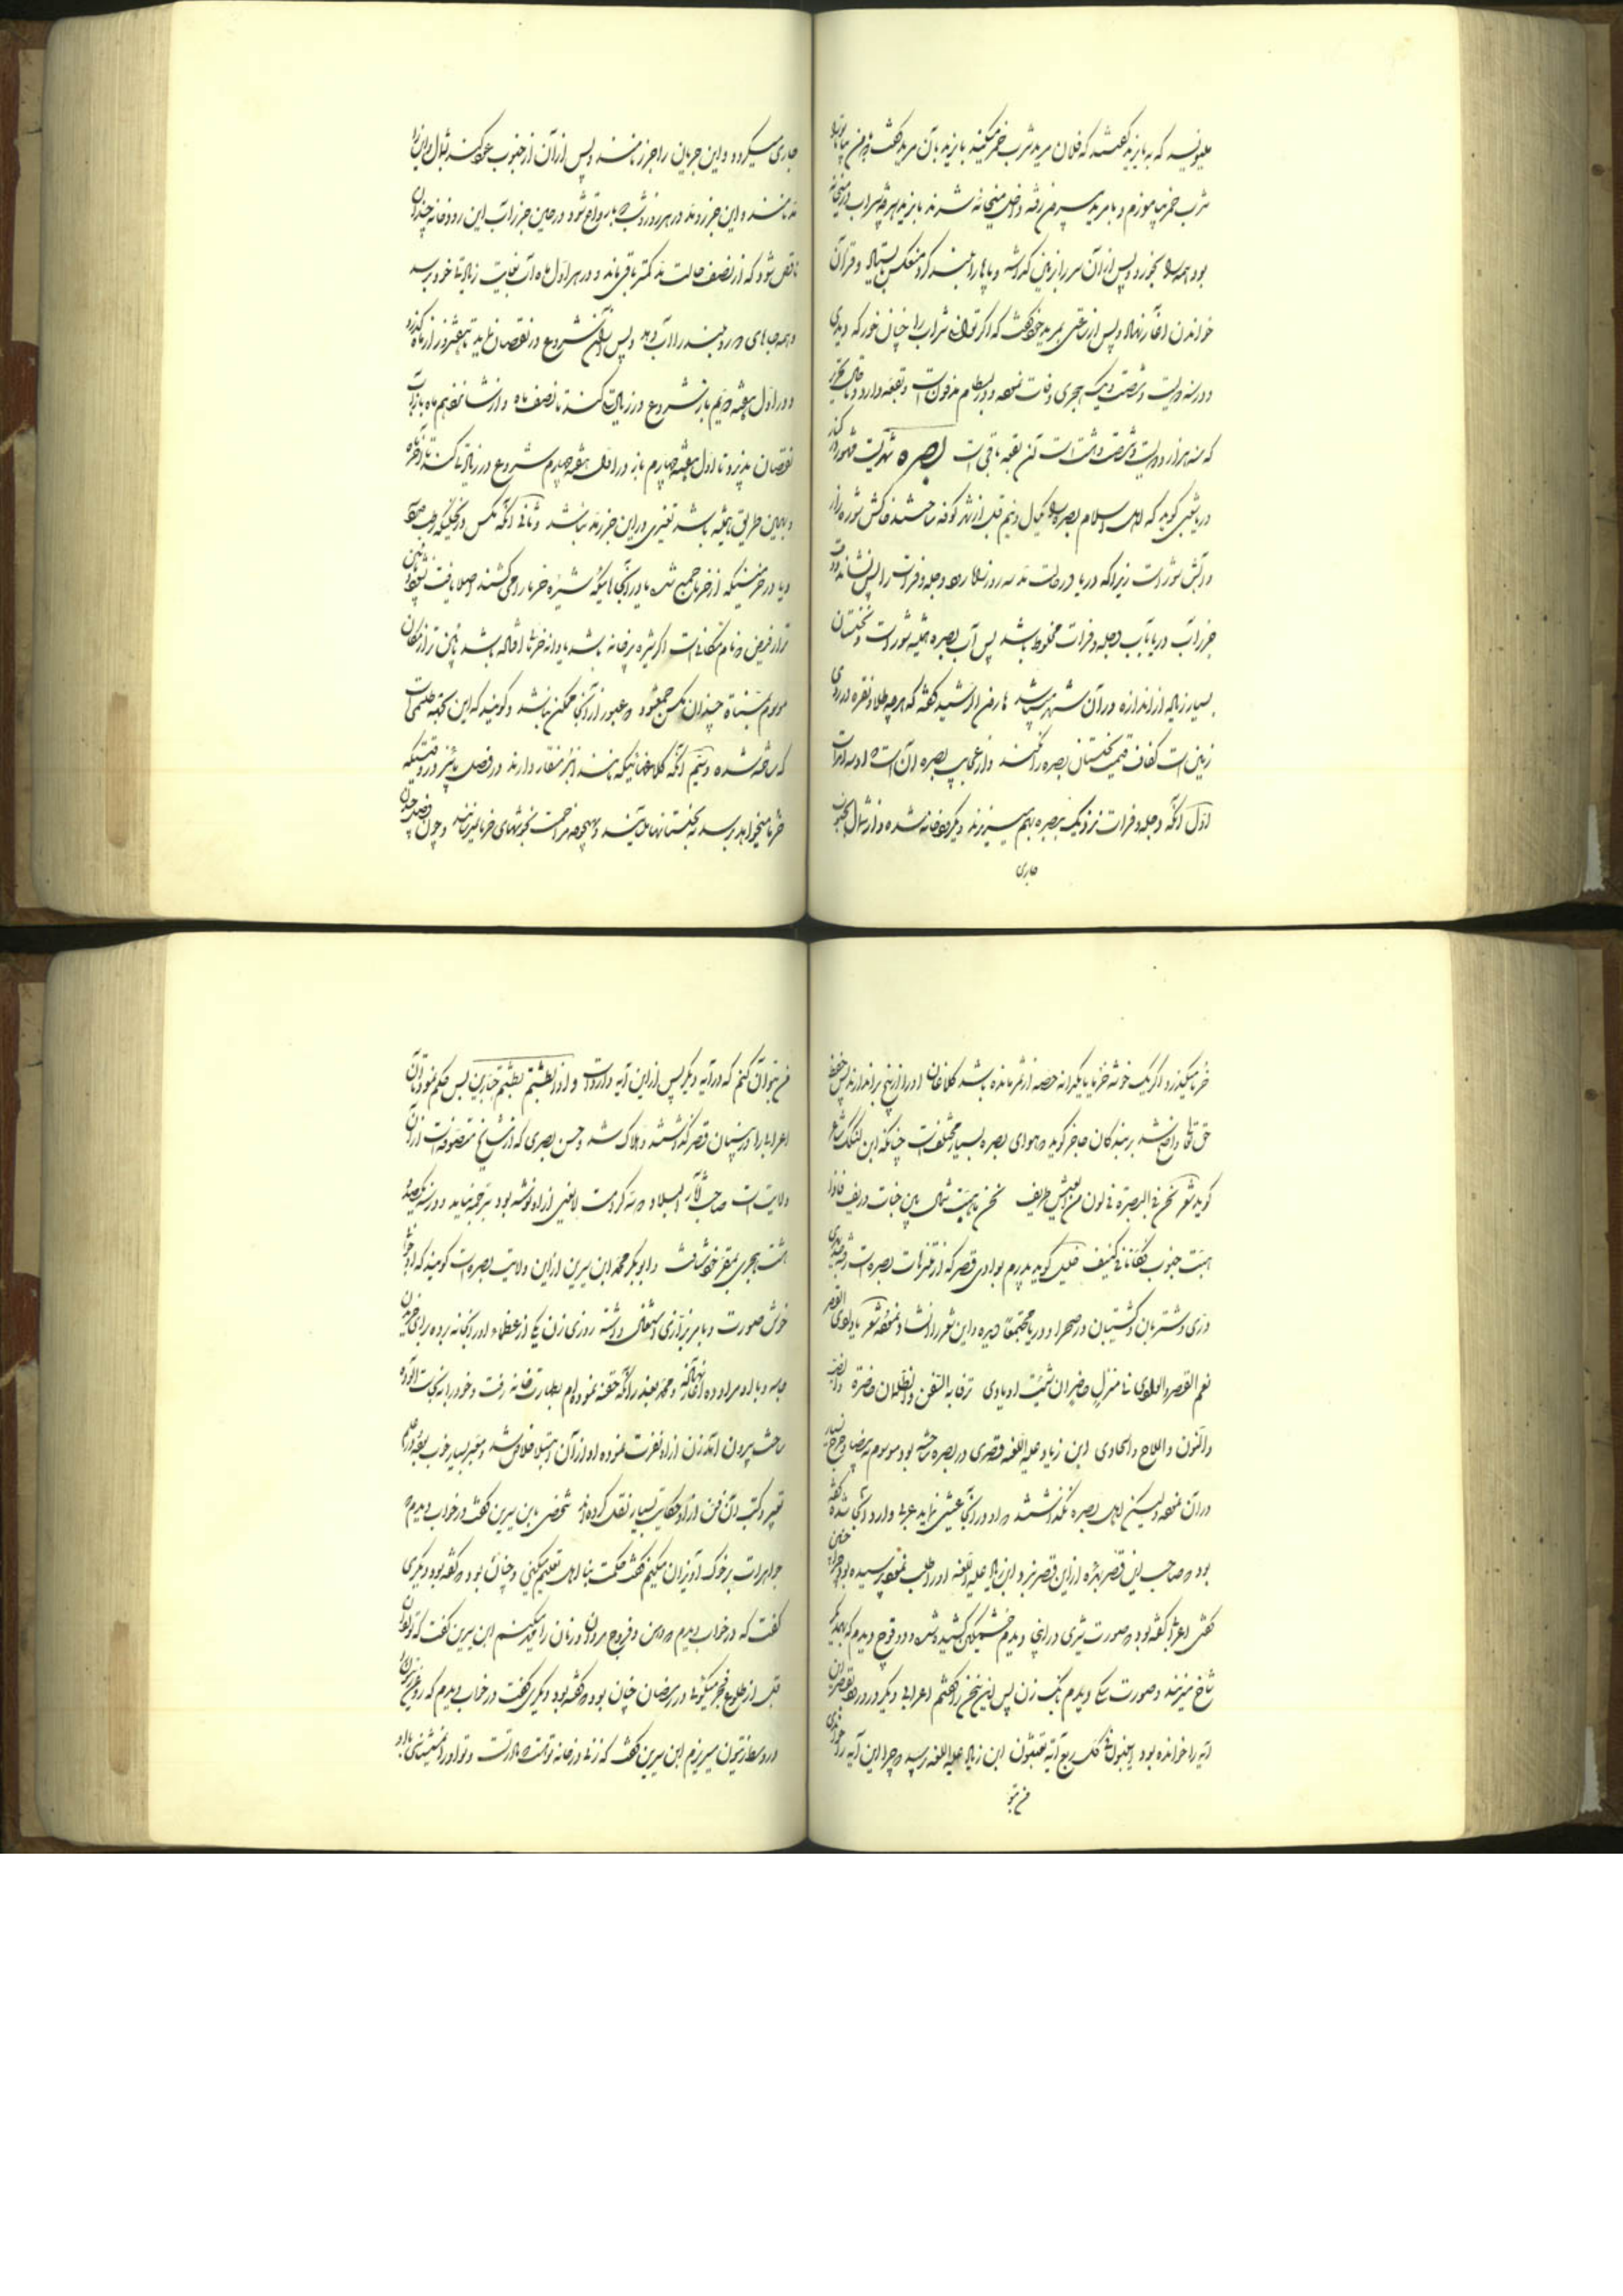 که به بایزید گفتند که فلان مرید شرب خمر میکند بایزید بآن مرید گفت
شرب خمر بیاموزم و با مرید بیرون رفته داخل میخانه شدند بایزید هر چه شراب در میخانه
بود همه را بخورد و پس از آن سر را بزمین گذاشته و پاها را بلند کرد منعکس بایستاد و قرآن
خواندن آغاز نهاد و پس از ساعتی بمرید خود گفت که اگر توانی شراب را چنان خور که دیدی
و در سنه دویست و شصت و یک هجری وفات نمود و در بسطام مدفون است و بقعه دارد و تا حال تحریر
که سنه هزار و دویست و شصت و هشت است آن بقعه باقی است بصره شهریست مشهور در کنار
دریا شعبی گوید که اهل اسلام بصره را یکسال و نیم قبل از شهر کوفه ساختند خاکش شوره زار
و آبش شور است زیرا که دریا در حالت مد سه روزه راه دجله و فرات را پس نشاند و در وقت
جزر آب دریا بآب دجله و فرات مخلوط باشد پس آب بصره همیشه شور است و نخلستان
بسیار زیاد از اندازه در آن شهر میباشد هارون الرشید گفته که هر چه طلا و نقره در روی
زمین است کفاف قیمت نخلستان بصره را نکند و از عجایب بصره آن است
اول آنکه دجله و فرات نزدیک بصره بهم میریزند و یک رودخانه شده و از شمال بجنوب
جاری
جاری میگردد و این جریان را جزر نامند و پس از آن از جنوب عود کند بشمال و این را
مد نامند و این جزر و مد در هر روز و شب دو بار واقع شود و در حین جزر آب این رودخانه چندان
ناقص شود که از نصف حالت مد کمتر باقی ماند و در هر اول ماه آب بغایت زیادتی خود برسد
و همه جاهای دور و بلند را آب دهد و پس از آن شروع در نقصان نماید تا هفت روز از ماه گذرد
و در اول هفته دویم باز شروع در زیادت کند تا نصف ماه و از شانزدهم ماه باز آب
نقصان پذیرد تا اول هفته چهارم باز در اول هفته چهارم شروع در زیادتی کند تا آخر ماه
و بهمین طریق همیشه باشد تغییری در این جزر و مد نباشد و ثانی آنکه مگس در
و یا در خرمنیکه از خرما جمع شده یا در آنجاهائیکه شیره خرما را می کشند اصلا یافت نشود
باشد یا دانه خرما افتاده باشد
چندان مگس جمع شود که عبور از آنجا ممکن نباشد و گویند که این نکته طلسمی است
که ساخته شده و سیم آنکه کلاغهائیکه مانند انبر منقار دارند در فصل پائیز در وقتیکه
خرما میخواهد برسد به نخلستانها میآیند و بهیچوجه مزاحمت بخوشهای خرما نمیرسانند و چون فصل چیدن
خرما میگذرد اگر یک خوشه خرما یا یکدانه حصه از ثمر مانده باشد کلاغان او را از بیخ براندازند پس حفظ
حق تعالی واضح باشد بر بندگان عاجز گوید و هوای بصره بسیار مختلف است چنانکه ابن لنکک شاعر
گوید شعر نحن فی البصرة فی لون من العیش ظریف نحن ما هبت شمال بین جنات و ریف فاذا
هبت جنوب فکأنا فی کنیف خلیل گوید پدرم بوادی قصر که از متنزهات بصره است رفته
و شتربان و کشتیبان در صحرا و دریا مجتمعا دیده و این شعر را انشاد نموده شعر یا وادی القصر
نعم القصر و الوادی فی منزل حاضر ان شئت او بادی ترفا به السفن و الظلمان حاضرة و الضب
و النون و الملاح و الحادی ابن زیاد علیه اللعنه قصری در بصره ساخته بود موسوم به بیضا و خرج بسیار
در آن نموده لیکن اهل بصره نگذاشتند که او در آنجا عیشی نماید عربی وارد آنجا شده گفته
بود که صاحب این قصر بهره از این قصر نبرد ابن زیاد علیه اللعنه او را طلب نموده پرسیده بود چرا چنین
گفتی اعرابی گفته بود که صورت شیری در اینجا دیدم خشمگین کشیده شده و دو قوچ دیدم که بهمدیگر
شاخ میزنند و صورت سگی دیدم بانگ زن پس این سخن را گفتم اعرابی دیگر در ورود بقصر این
آیه را خوانده بود أتبنون بکل ریع آیة تعبثون ابن زیاد علیه اللعنه پرسید که چرا این آیه را خواندی
که در آیه دیگر پس از این آیه وارد است و اذا بطشتم بطشتم جبارین پس حکم نمود تا آن
اعرابی را در بنیان قصر گذاشتند و هلاک شد و حسن بصری که از مشایخ متصوفه است از آن
ولایت است صاحب آثار البلاد
هشت هجری بمقر خود شتافت و ابوبکر محمد ابن سیرین از این ولایت بصره است گویند که او جوانی
خوش صورت و بامر بزازی اشتغال داشته روزی زن یکی از عظماء او را بخانه برده برای خریدن
رفت و خود را به نجاست آلوده
ساخت بیرون آمد زن از او نفرت نموده او از آن ابتلا خلاص شد و معبر بسیار خوب بوده و در علم
تعبیر و کتب آن فن از او حکایت بسیار نقل کرده اند شخصی بابن سیرین گفت در خواب دیدم که
جواهرات بر خوک آویزان میکنم گفت حکمت بنااهل تعلیم میکنی و چنان بود که گفته بود و دیگری
گفت که در خواب دیدم که دهن و فروج مردان و زنان را مهر میکنم ابن سیرین گفت که تو اذان
قبل از طلوع فجر میگوئی در رمضان چنان بود که گفته بود و دیگری گفت در خواب دیدم که روغن زیتون را
در وسط زیتون میریزم ابن سیرین گفت که زنی در خانه تو است که مادر تست و تو او را نمیشناسی